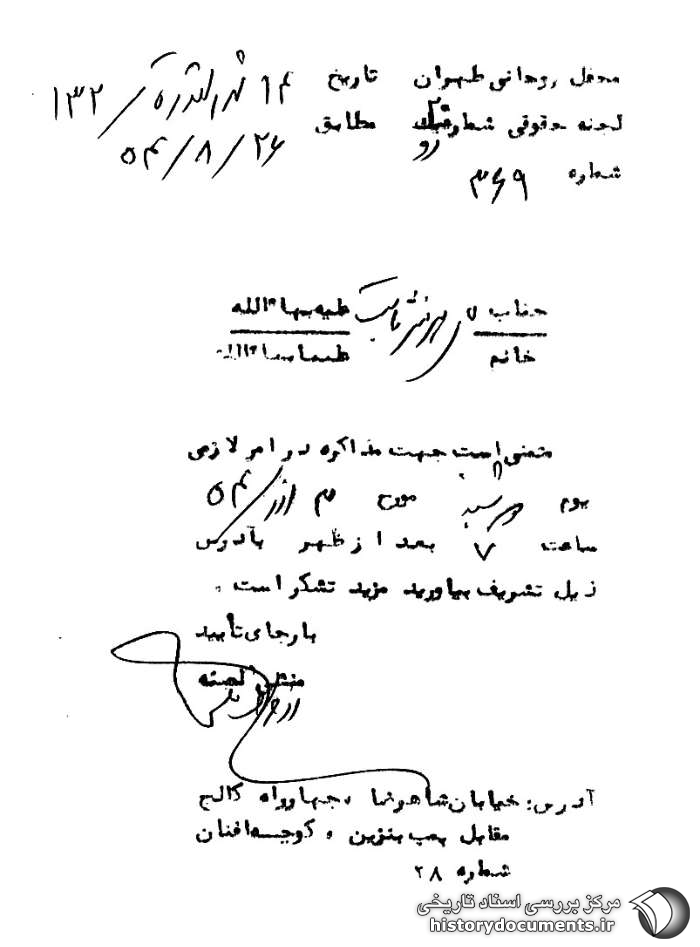 محفل روحانی طهران تاریخ ۱۴ شهرالقدرة / ۱۳۲
لجنه حقوقی شماره دو مطابق ۲۶ / ۸ / ۵۴
شماره ۳۶۹
جناب علیه بهاءالله
خانم علیها بهاءالله
متمنی است جهت مذاکره در امر لازمی
یوم مورخ ۳ آذر / ۵۴
ساعت ۷ بعد از ظهر بآدرس
ذیل تشریف بیاورید مزید تشکر است .
با رجای تأیید
منشی لجنه
آدرس: خیابان شاهرضا ، چهارراه کالج
مقابل پمپ بنزین ، کوچه افنان
شماره ۲۸
مرکز بررسی اسناد تاریخی
historydocuments.ir